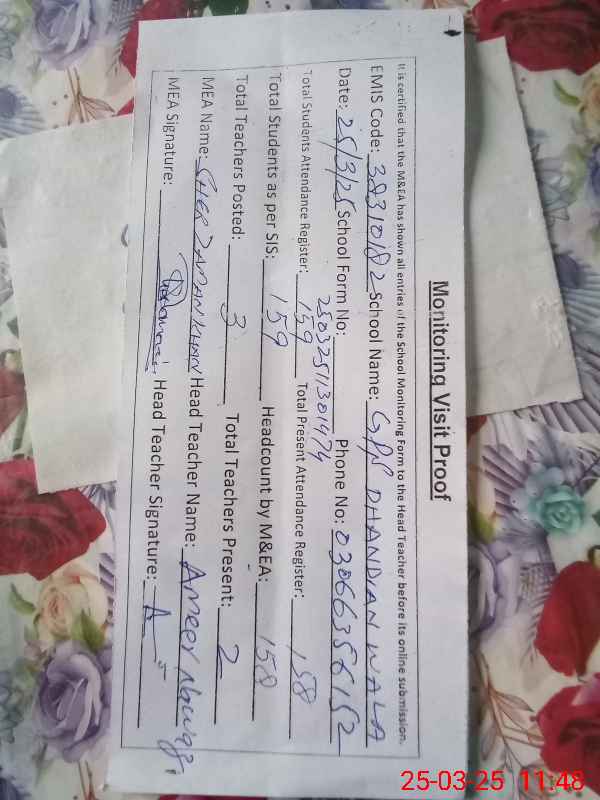 Monitoring Visit Proof
It is certified that the M&EA has shown all entries of the School Monitoring Form to the Head Teacher before its online submission.
EMIS Code: 38310182 School Name: GPS DHANDIAN WALA
Date: 25/3/25 School Form No: 25032511301974 Phone No: 03066356152
Total Students Attendance Register: 159 Total Present Attendance Register: 158
Total Students as per SIS: 159 Headcount by M&EA: 158
Total Teachers Posted: 3 Total Teachers Present: 2
MEA Name: SHER ZAMAN KHAN Head Teacher Name: Ameer Nawaz
MEA Signature: Head Teacher Signature:
25-03-25 11:48